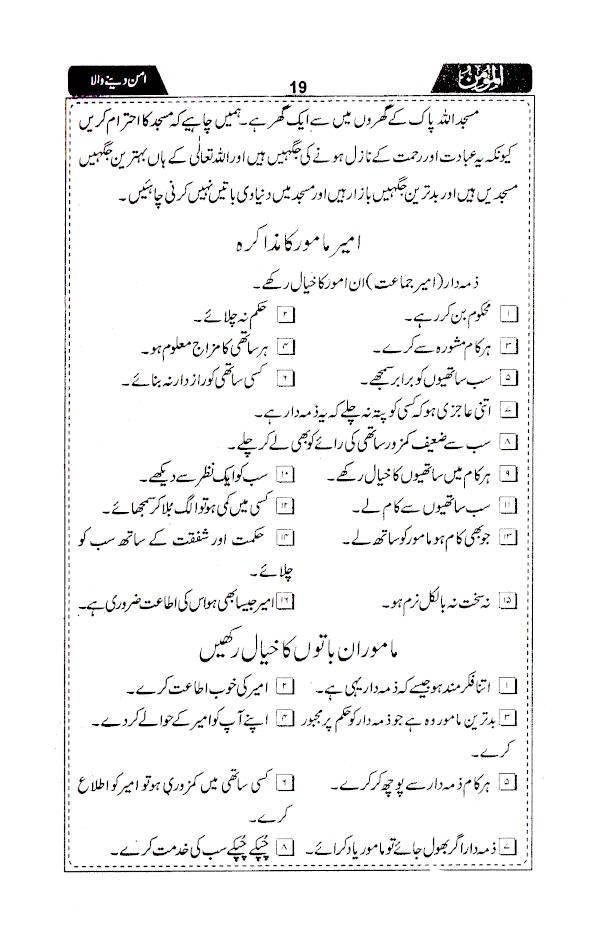 المؤمن
19
امن دینے والا
مسجد اللہ پاک کے گھروں میں سے ایک گھر ہے۔ ہمیں چاہیے کہ مسجد کا احترام کریں
کیونکہ یہ عبادت اور رحمت کے نازل ہونے کی جگہیں ہیں اور اللہ تعالٰی کے ہاں بہترین جگہیں
مسجدیں ہیں اور بدترین جگہیں بازار ہیں اور مسجد میں دنیاوی باتیں نہیں کرنی چاہئیں۔
امیر مامور کا مذاکرہ
ذمہ دار (امیر جماعت) ان امور کا خیال رکھے۔
۱ محکوم بن کر رہے۔ ۲ حکم نہ چلائے۔
۳ ہر کام مشورہ سے کرے۔ ۴ ہر ساتھی کا مزاج معلوم ہو۔
۵ سب ساتھیوں کو برابر سمجھے۔ ۶ کسی ساتھی کو راز دار نہ بنائے۔
۷ اتنی عاجزی ہو کہ کسی کو پتہ نہ چلے کہ یہ ذمہ دار ہے۔
۸ سب سے ضعیف کمزور ساتھی کی رائے کو بھی لے کر چلے۔
۹ ہر کام میں ساتھیوں کا خیال رکھے۔ ۱۰ سب کو ایک نظر سے دیکھے۔
۱۱ سب ساتھیوں سے کام لے۔ ۱۲ کسی میں کمی ہو تو الگ بُلا کر سمجھائے۔
۱۳ جو بھی کام ہو مامور کو ساتھ لے۔ ۱۴ حکمت اور شفقت کے ساتھ سب کو
چلائے۔
۱۵ نہ سخت نہ بالکل نرم ہو۔ ۱۶ امیر جیسا بھی ہو اس کی اطاعت ضروری ہے۔
مامور ان باتوں کا خیال رکھیں
۱ اتنا فکر مند ہو جیسے کہ ذمہ دار یہی ہے۔ ۲ امیر کی خوب اطاعت کرے۔
۳ بدترین مامور وہ ہے جو ذمہ دار کو حکم پر مجبور ۴ اپنے آپ کو امیر کے حوالے کر دے۔
کرے۔
۵ ہر کام ذمہ دار سے پوچھ کر کرے۔ ۶ کسی ساتھی میں کمزوری ہو تو امیر کو اطلاع
کرے۔
۷ ذمہ دار اگر بھول جائے تو مامور یاد کرائے۔ ۸ چُپکے چُپکے سب کی خدمت کرے۔